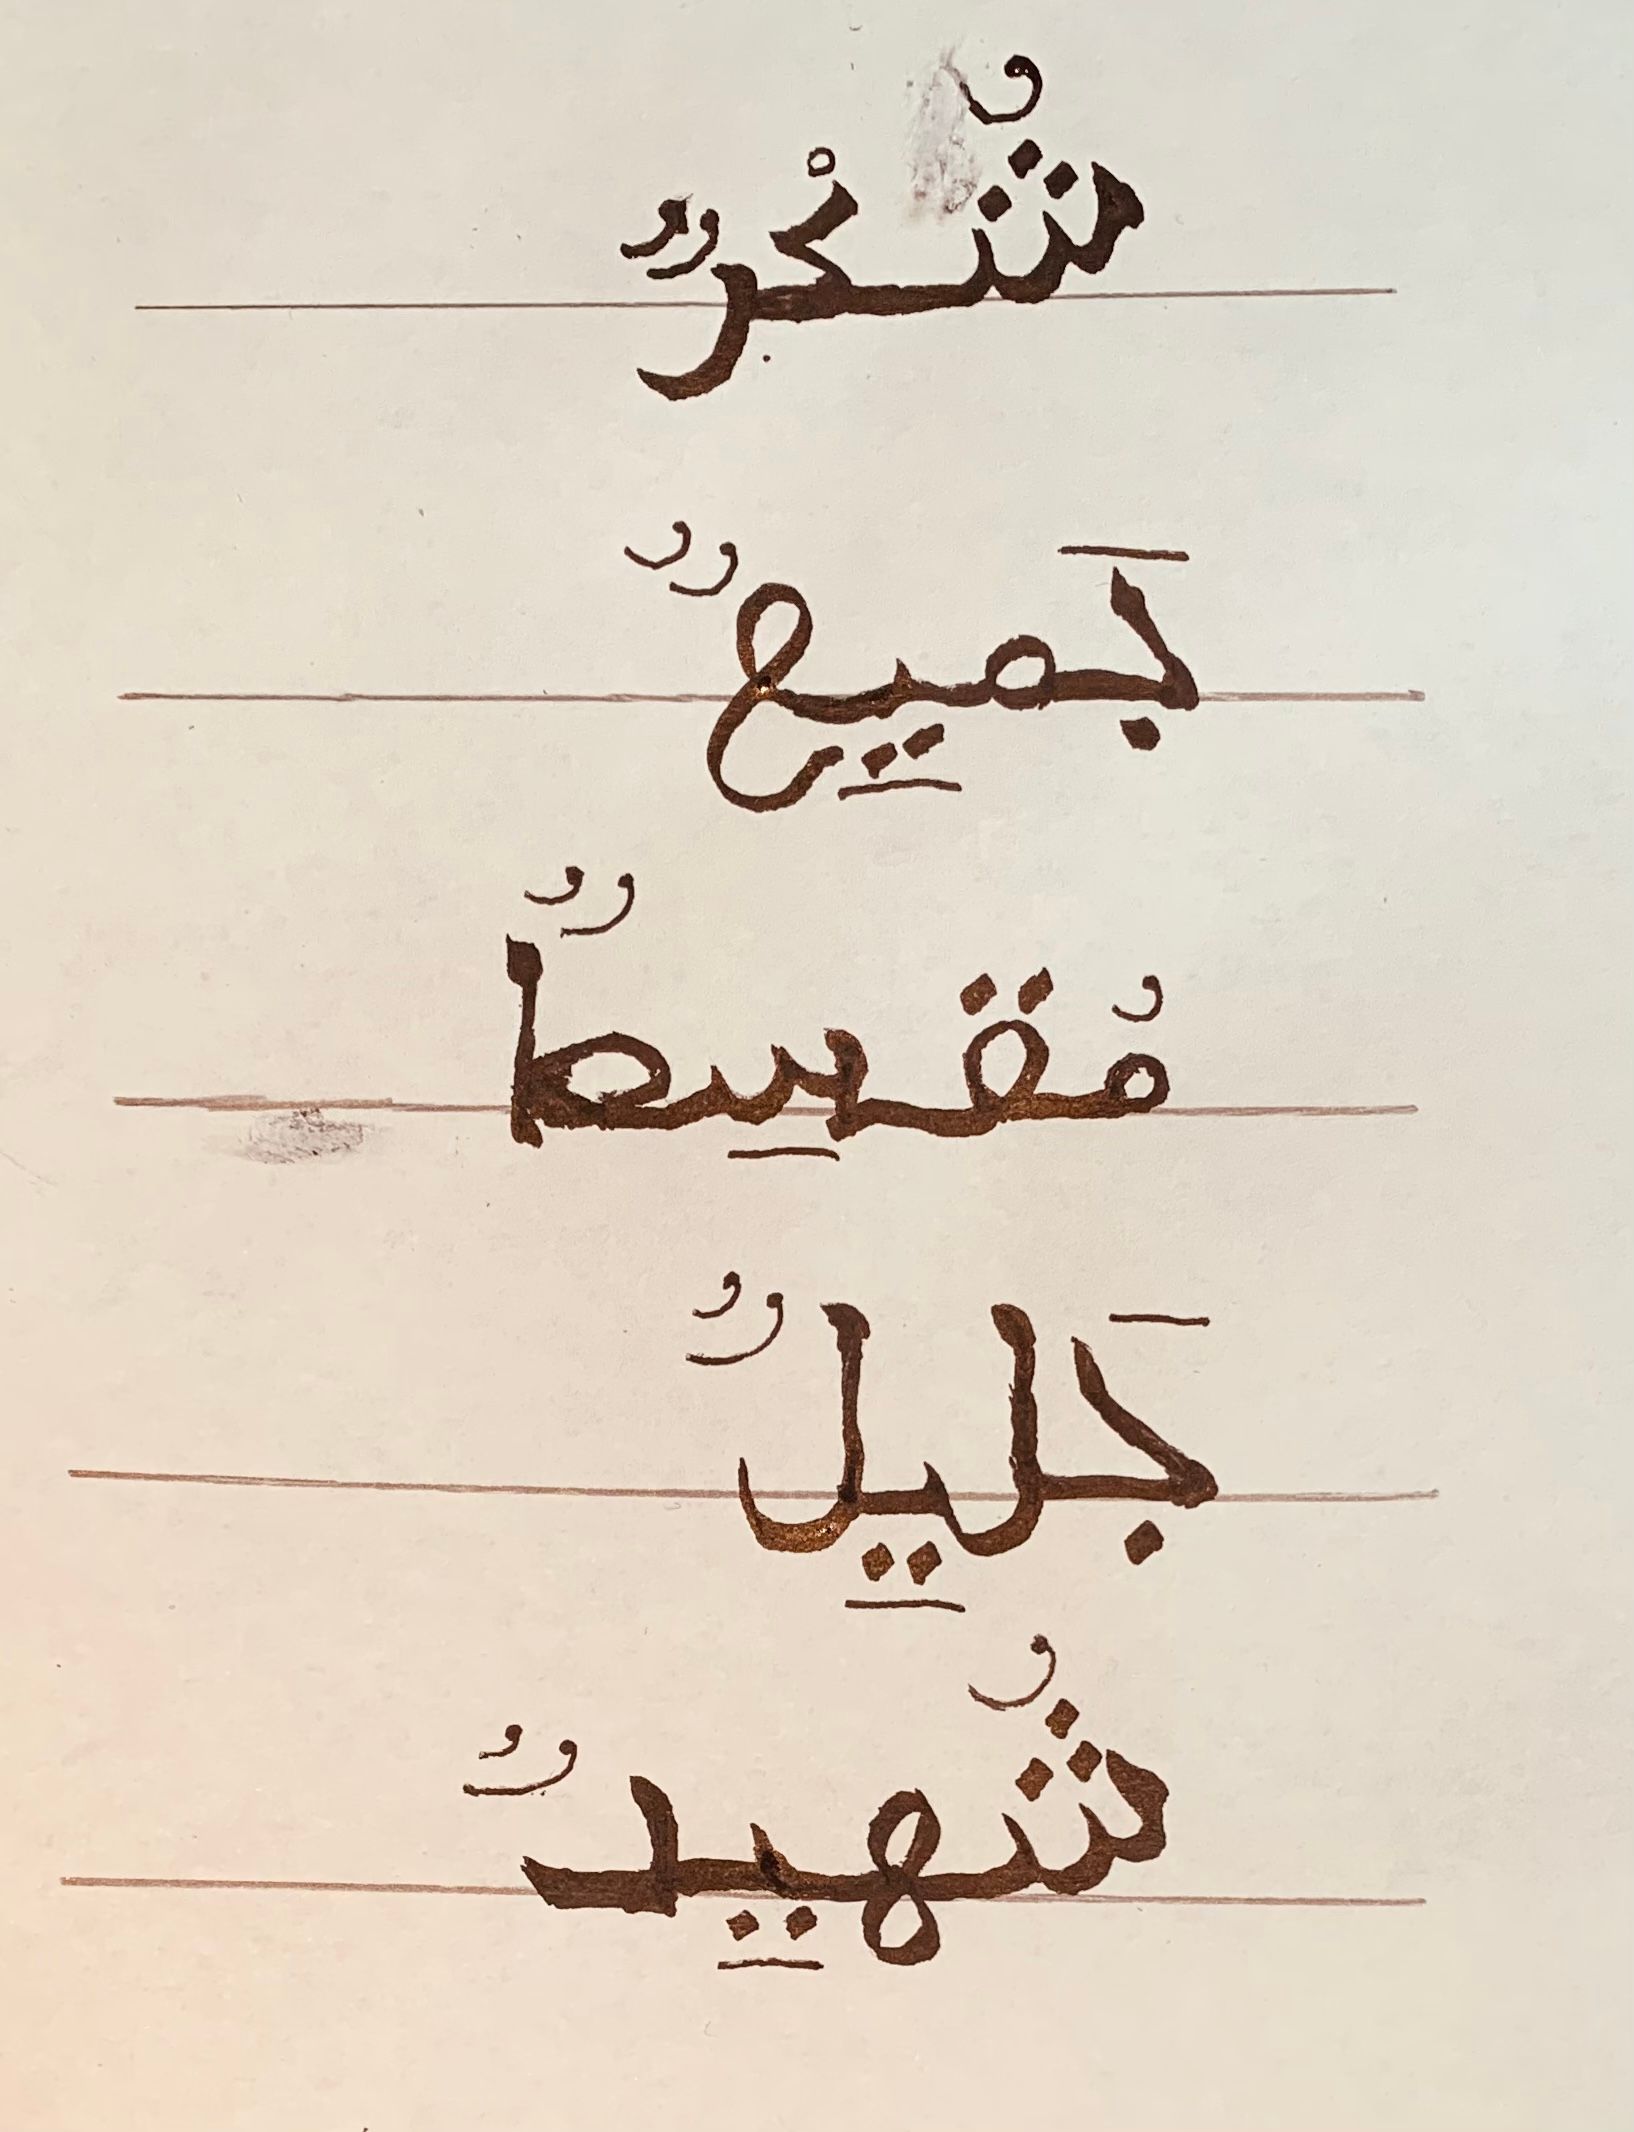 شُكْرٌ
جَميِعٌ
مُقسِطٌ
جَليِلٌ
شُهيِدٌ